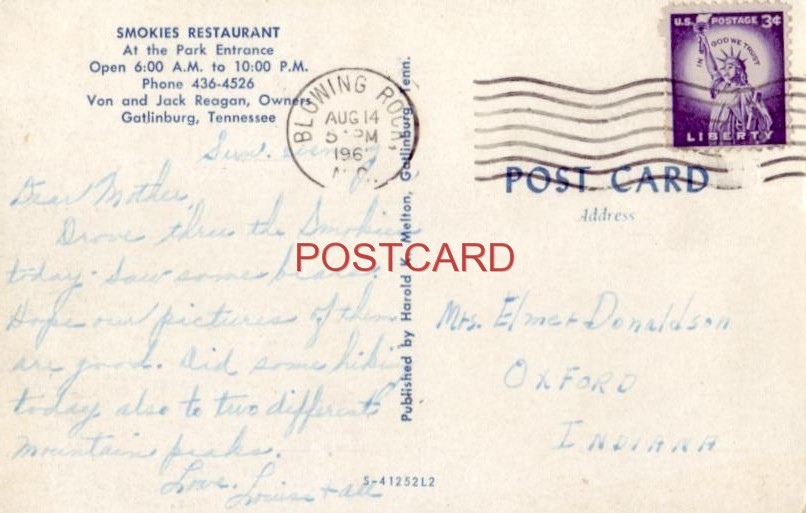 SMOKIES RESTAURANT
At the Park Entrance
Open 6:00 A.M. to 10:00 P.M.
Phone 436-4526
Von and Jack Reagan, Owners
Gatlinburg, Tennessee
Sun. evening
Dear Mother,
Drove thru the Smokies
today. Saw some bears.
Hope our pictures of them
are good. Did some hiking
today also to two different
mountain peaks.
Love,
Louise + all
Published by Harold K. Melton, Gatlinburg, Tenn.
S-41252L2
BLOWING ROCK,
AUG 14
PM
196
N.C.
U.S. POSTAGE 3¢
IN GOD WE TRUST
LIBERTY
POST CARD
Address
Mrs. Elmer Donaldson
OXFORD
INDIANA
POSTCARD